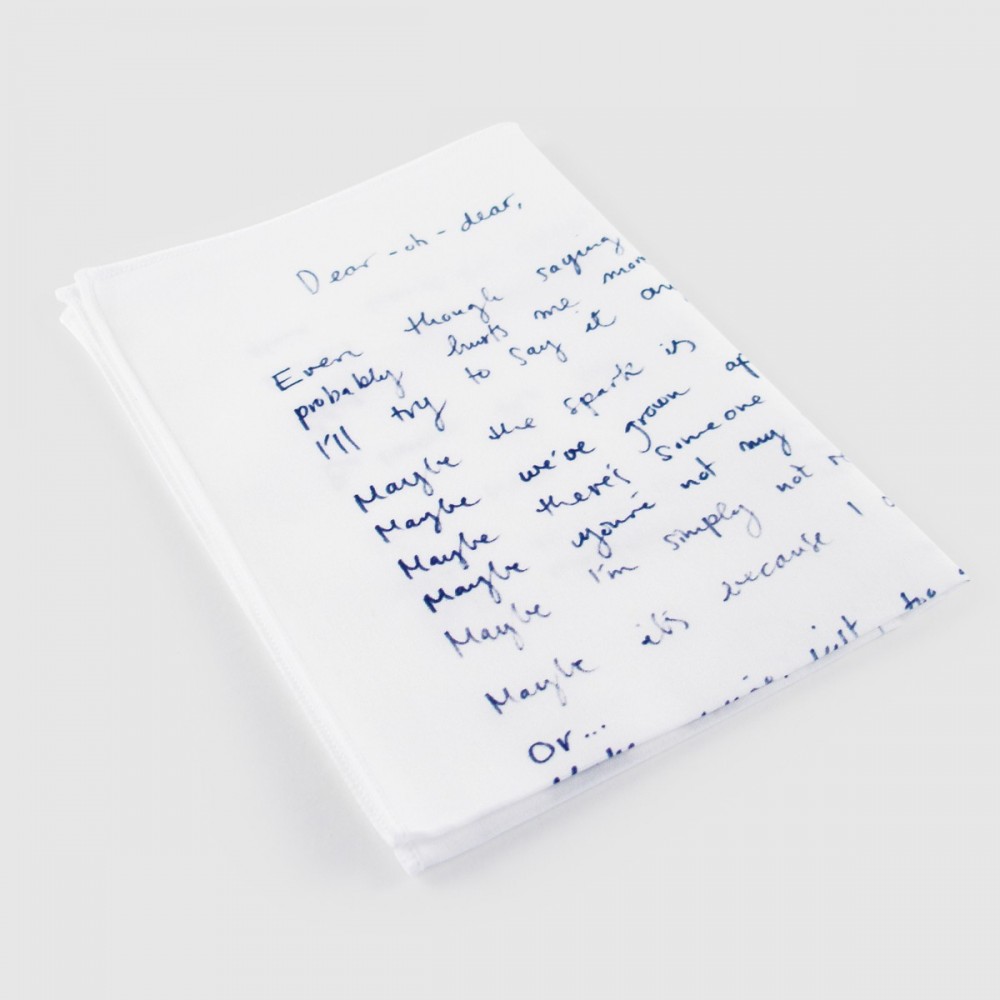 Dear-oh-dear,
Even though saying
probably hurts me mor
I'll try to say it an
Maybe the spark is
Maybe we've grown ap
Maybe there's someone
Maybe you're not my
Maybe I'm simply not
Maybe it's because I
Or...